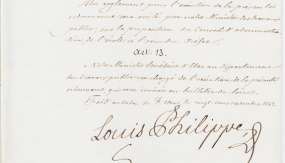 Un règlement pour l'exécution de la présente
ordonnance sera arrêté par notre Ministre des travaux
publics, sur la proposition du Conseil d'administration
de l'école
Art. 13.
Notre Ministre Secrétaire d'État au département
des travaux publics est chargé de l'exécution de la présente
ordonnance qui sera insérée au bulletin des lois.
Fait au palais de le vingt
Louis Philippe